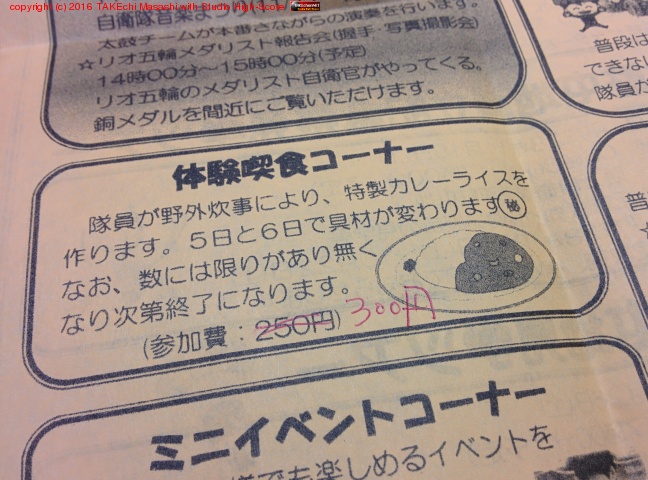 copyright (c) 2016 TAKEchi Masashi with Studio High-Score!
太鼓チームが本番さながらの演奏を行います。
☆リオ五輪メダリスト報告会(握手・写真撮影会)
14時00分～15時00分(予定)
リオ五輪のメダリスト自衛官がやってくる。
銅メダルを間近にご覧いただけます。
普段は
できない
隊員が
体験喫食コーナー
隊員が野外炊事により、特製カレーライスを
作ります。5日と6日で具材が変わります㊙
なお、数には限りがあり無く
なり次第終了になります。
(参加費：250円) 300円
普
ミニイベントコーナー
でも楽しめるイベントを